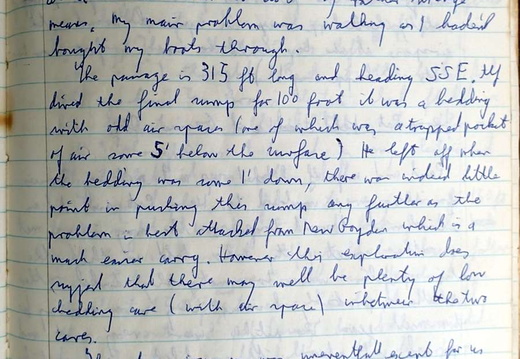 means, My main problem was walking as I hadn't
bought my boots through.
The passage is 315 ft long and heading SSE.
dived the final sump for 100 foot it was a bedding
with odd air spaces (one of which was a trapped pocket
of air some 5' below the surface) He left off when
the bedding was some 1' down, there was indeed little
point in pushing this sump any further as the
problem is best attacked from New Goyden which is a
much easier carry. However this exploration does
suggest that there may well be plenty of low
bedding cave (with air space) inbetween the two
caves.
uneventfull except for us